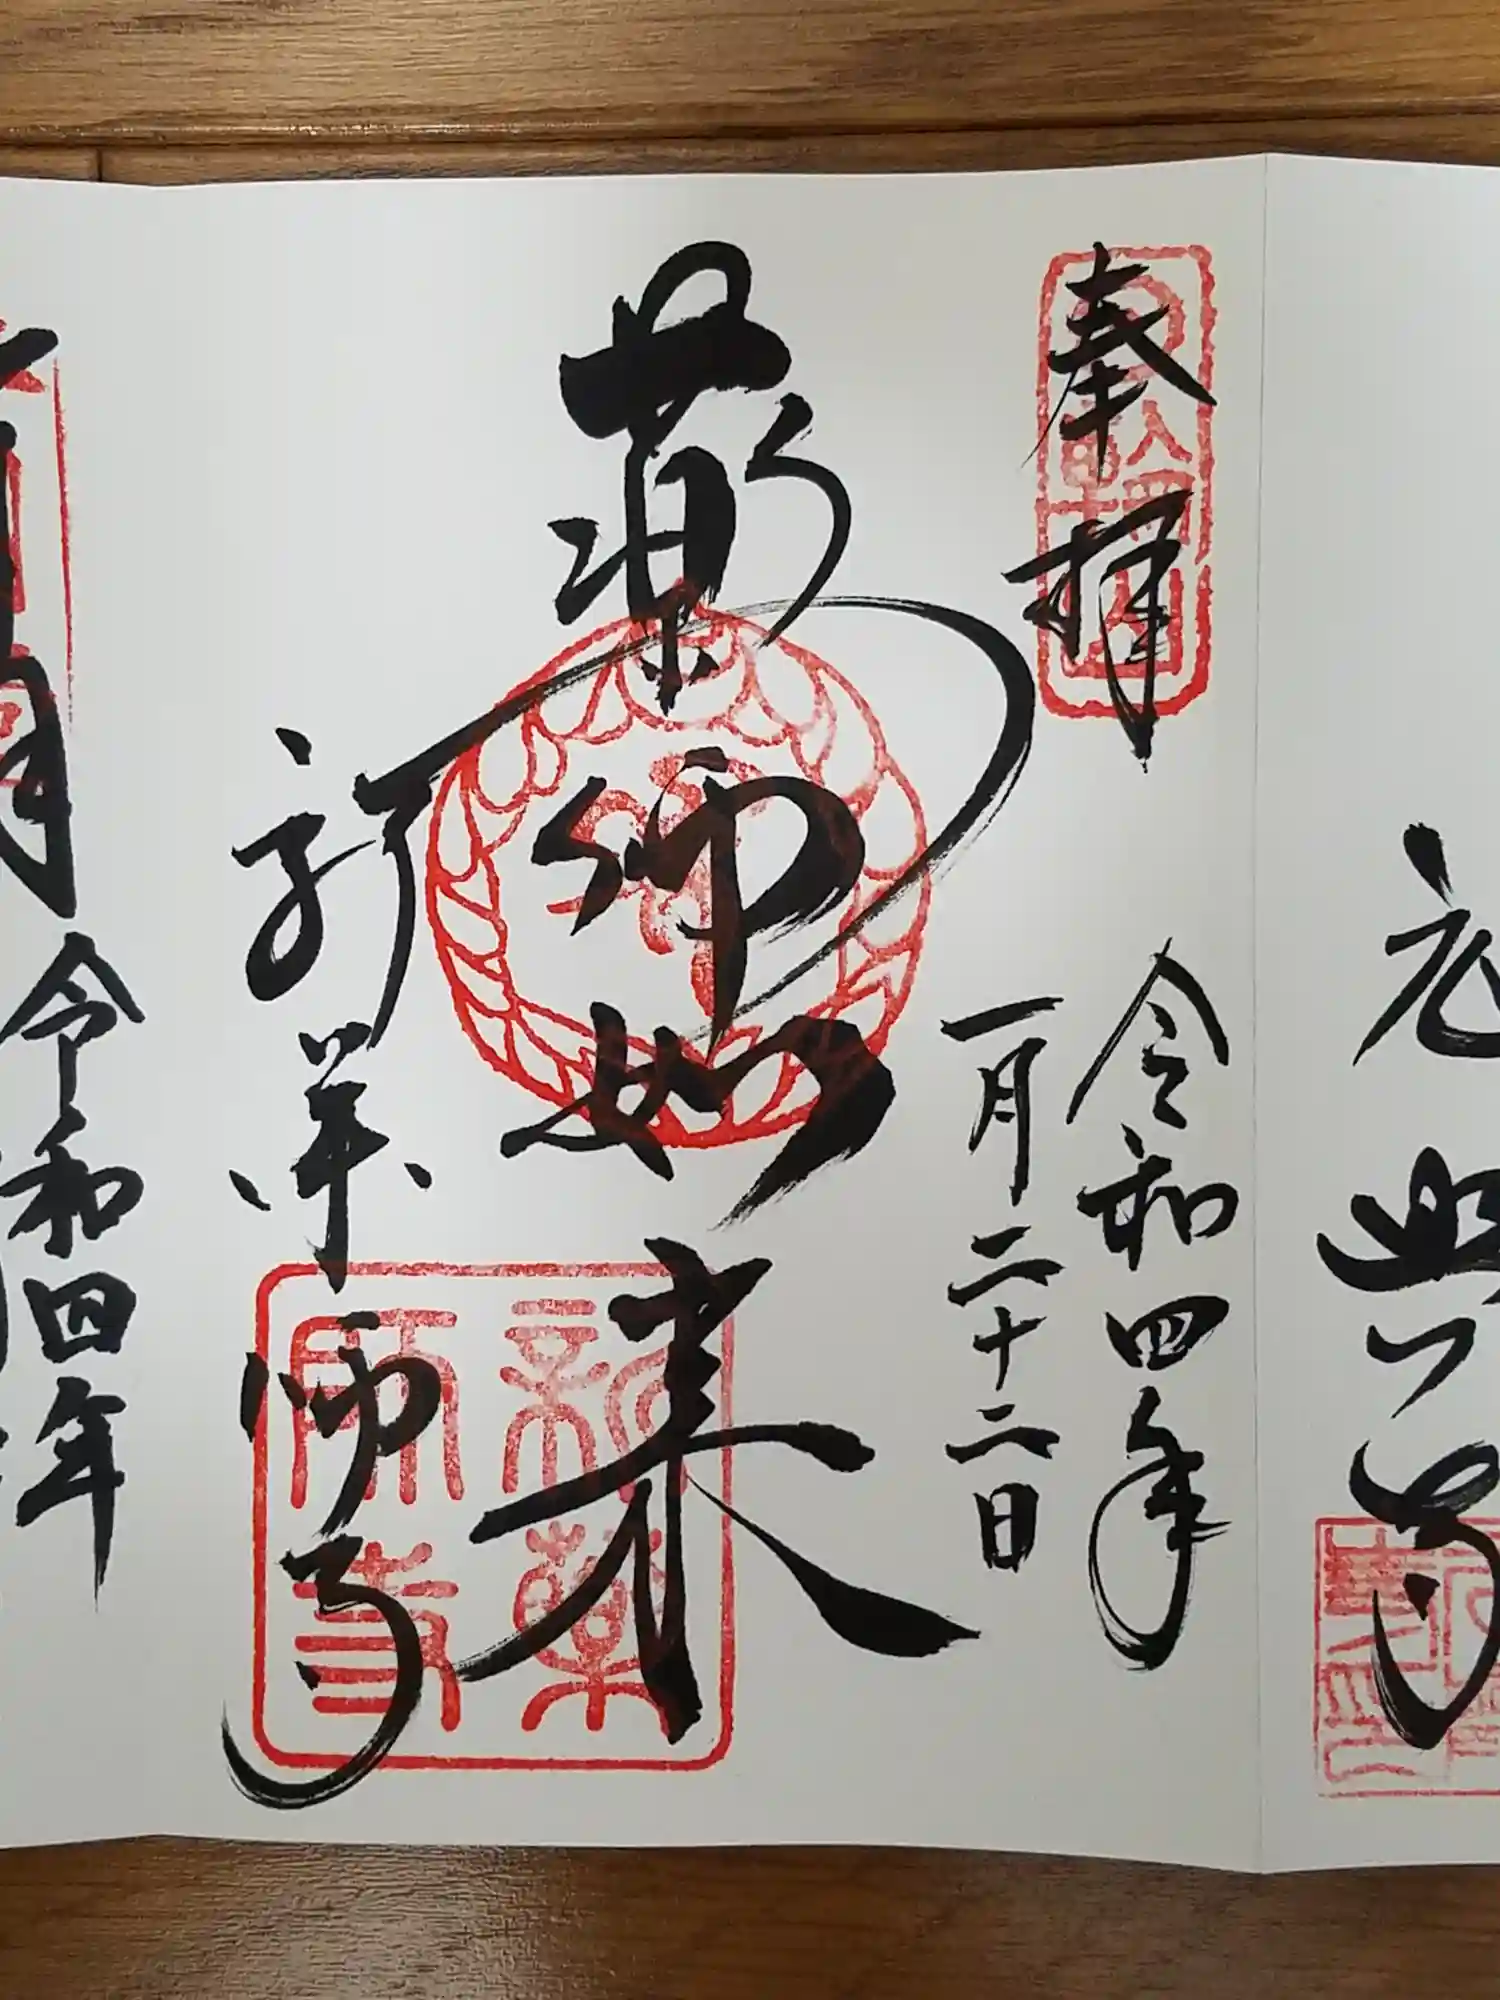 元興寺
奉拝
令和四年
一月二十二日
薬師如来
新薬師寺
新薬
師寺
月
令和四年